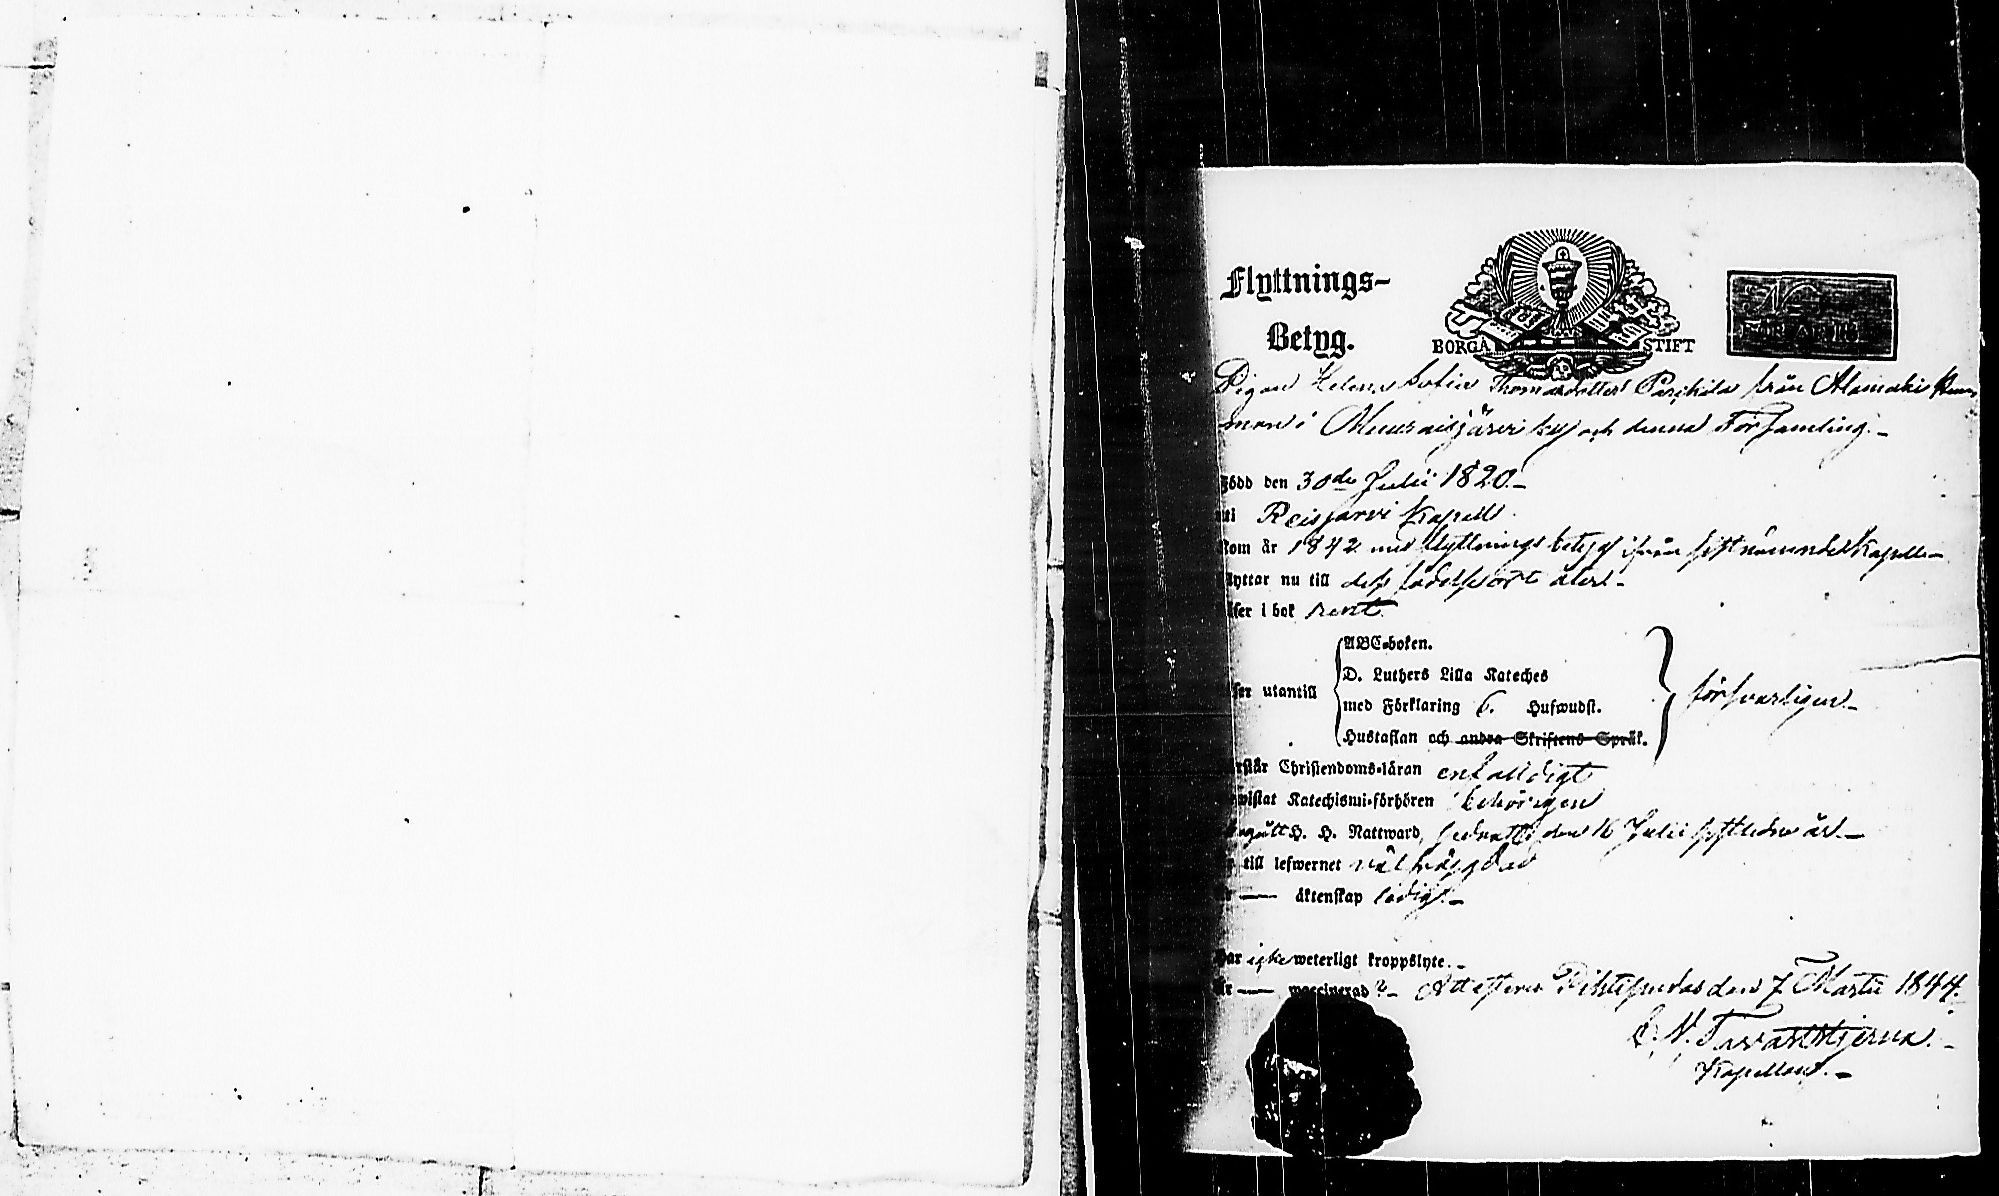 Flyttnings-
Betyg.
BORGÅ STIFT
Pigan Helena Sofia Thomasdotter Parikila från Alamäki
man i Muuraisjärvi by och denna Församling.-
Född den 30de Julii 1820.-
uti Reisjärvi Kapell.
Kom år 1842 med flyttnings betyg ifrån sistnämnde Kapell-
flyttar nu till dess födelseort åter.-
läser i bok rent.
läser utantill
ABC-boken.
D. Luthers Lilla Kateches
med Förklaring 6. Hufwudst.
Hustaflan och andra Skriftens Språk.
försvarligen.-
Förstår Christendoms-läran enfaldigt
bewistat Katechismi-förhören behörigen
begått H. H. Nattward, sednast den 16 Julii sistledne år.-
Är till lefwernet välfrägdad
Är — äktenskap ledig.-
Har icke weterligt kroppslyte.-
Är — waccinerad?- Attesterar Pihtipudas den 7 Martii 1844.
C. N. Tavaststjerna.-
Kapellan.-